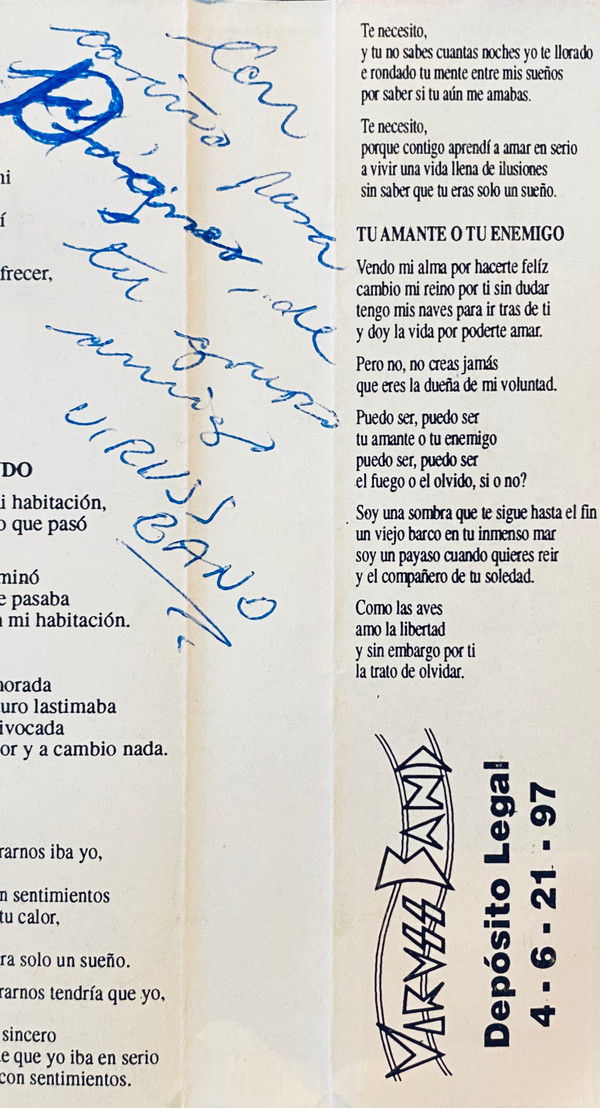 frecer,
NDO
i habitación,
o que pasó
minó
e pasaba
mi habitación.
norada
uro lastimaba
ivocada
or y a cambio nada.
rarnos iba yo,
n sentimientos
tu calor,
ra solo un sueño.
rarnos tendría que yo,
sincero
e que yo iba en serio
con sentimientos.
Con
cariño para
de
tu grupo
amigo
VIRUSS
BAND
Te necesito,
y tu no sabes cuantas noches yo te llorado
e rondado tu mente entre mis sueños
por saber si tu aún me amabas.
Te necesito,
porque contigo aprendí a amar en serio
a vivir una vida llena de ilusiones
sin saber que tu eras solo un sueño.
TU AMANTE O TU ENEMIGO
Vendo mi alma por hacerte felíz
cambio mi reino por ti sin dudar
tengo mis naves para ir tras de ti
y doy la vida por poderte amar.
Pero no, no creas jamás
que eres la dueña de mi voluntad.
Puedo ser, puedo ser
tu amante o tu enemigo
puedo ser, puedo ser
el fuego o el olvido, si o no?
Soy una sombra que te sigue hasta el fin
un viejo barco en tu inmenso mar
soy un payaso cuando quieres reir
y el compañero de tu soledad.
Como las aves
amo la libertad
y sin embargo por ti
la trato de olvidar.
VIRUSS BAND
Depósito Legal
4 - 6 - 21 - 97